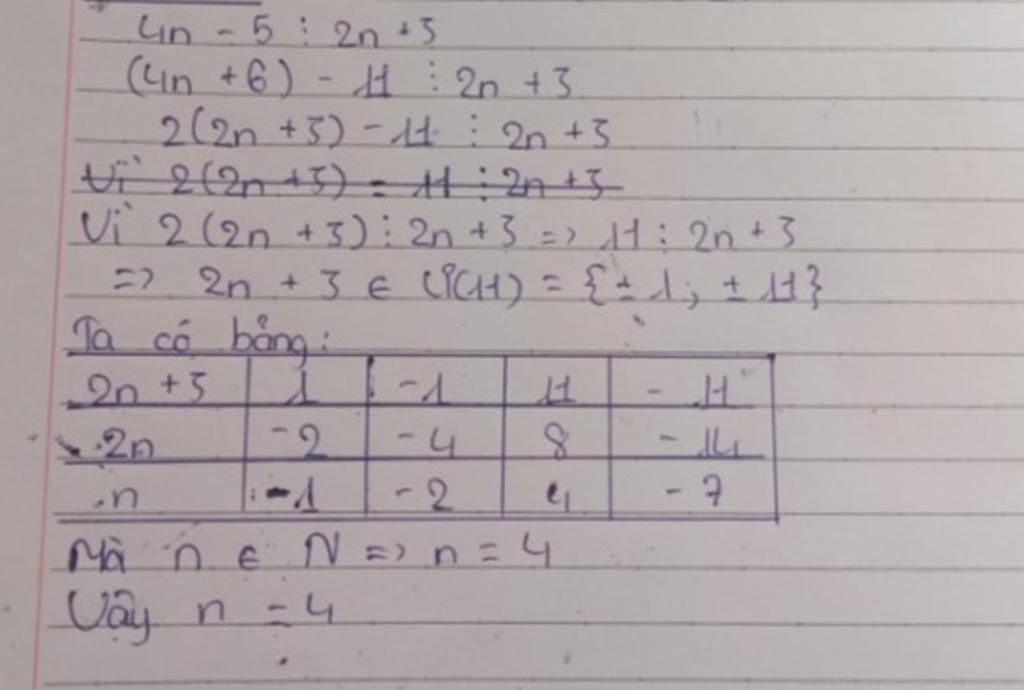 4n - 5 ⋮ 2n + 3
(4n + 6) - 11 ⋮ 2n + 3
2(2n + 3) - 11 ⋮ 2n + 3
Vì 2(2n + 3) = 11 ⋮ 2n + 3
Vì 2(2n + 3) ⋮ 2n + 3 => 11 ⋮ 2n + 3
=> 2n + 3 ∈ Ư(11) = {±1; ±11}
Ta có bảng:
2n + 3 | 1 | -1 | 11 | -11
2n | -2 | -4 | 8 | -14
n | -1 | -2 | 4 | -7
Mà n ∈ N => n = 4
Vậy n = 4